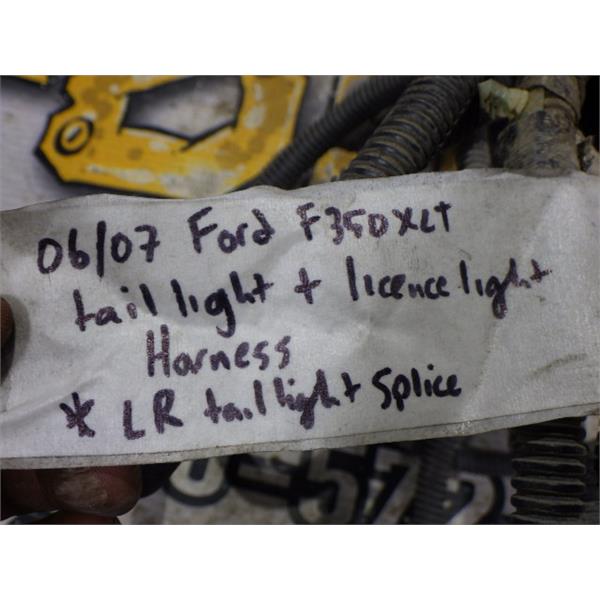 06/07 Ford F350 XLT
tail light + licence light
Harness
* LR tail light splice